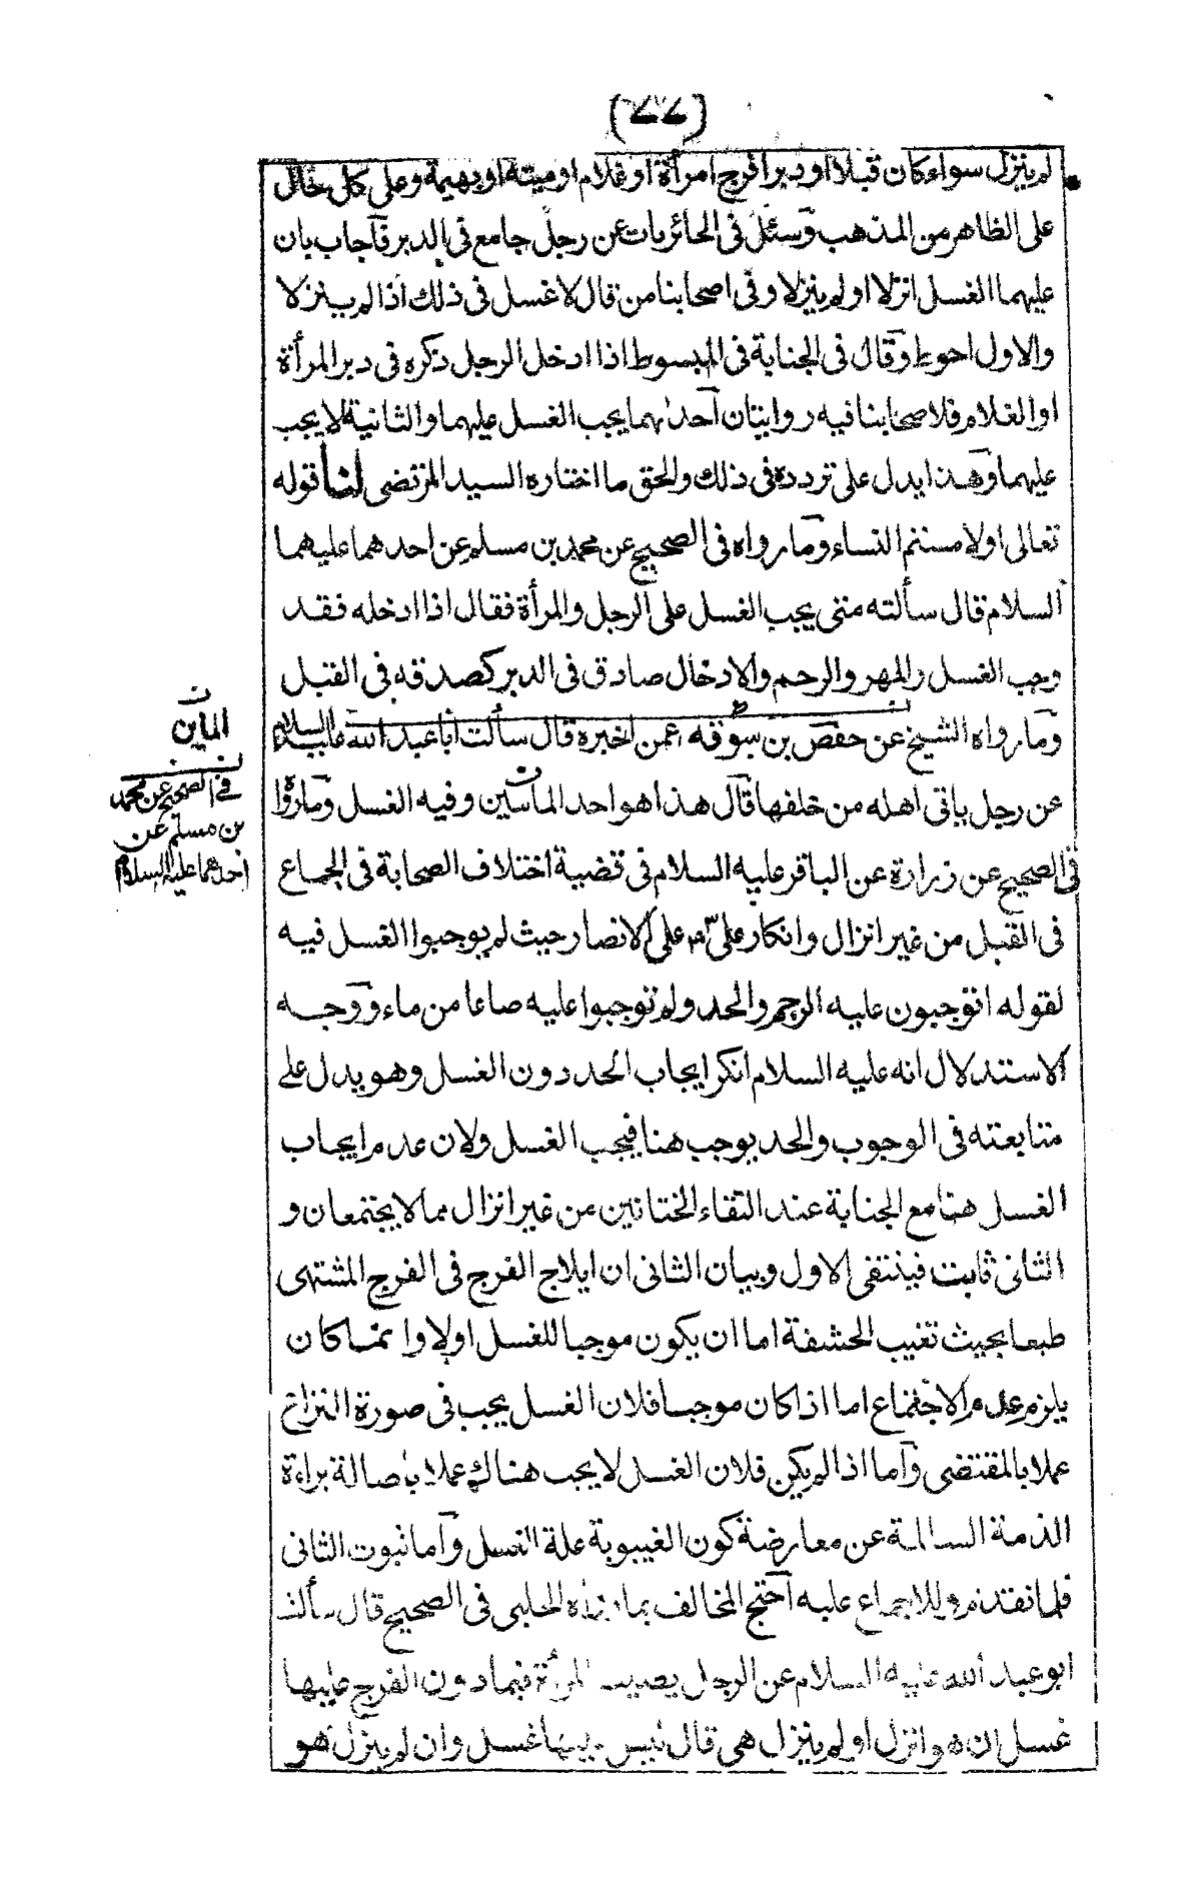 (٧٧)
لم ينزل سواء كان قبلا او دبرا فرج امرأة او غلام او ميتة او بهيمة وعلى كل حال
على الظاهر من المذهب وسئل فى الحائريات عن رجل جامع فى الدبر فاجاب بان
عليهما الغسل انزلا او لم ينزلا وفى اصحابنا من قال لا غسل فى ذلك اذا لم ينزلا
والاول احوط وقال فى الجنابة فى المبسوط اذا ادخل الرجل ذكره فى دبر المرأة
او الغلام فلاصحابنا فيه روايتان احدٰيهما يجب الغسل عليهما والثانية لا يجب
عليهما وهذا يدل على تردده فى ذلك والحق ما اختاره السيد المرتضى لنا قوله
تعالى او لامستم النساء وما رواه فى الصحيح عن محمد بن مسلم عن احدهما عليهما
السلام قال سألته متى يجب الغسل على الرجل والمرأة فقال اذا ادخله فقد
وجب الغسل والمهر والرجم والادخال صادق فى الدبر كصدقه فى القبل
وما رواه الشيخ عن حفص بن سوقه عمن اخبره قال سألت ابا عبد الله عليه السلام
عن رجل ياتى اهله من خلفها قال هذا هو احد الماتيين وفيه الغسل وما رواه
فى الصحيح عن زرارة عن الباقر عليه السلام فى قضية اختلاف الصحابة فى الجماع
فى القبل من غير انزال وانكار على ع م على الانصار حيث لم يوجبوا الغسل فيه
لقوله اتوجبون عليه الرجم والحد ولم توجبوا عليه صاعا من ماء ووجه
الاستدلال انه عليه السلام انكر ايجاب الحد دون الغسل وهو يدل على
متابعته فى الوجوب والحد يوجب هنا فيجب الغسل ولان عدم ايجاب
الغسل هنا مع الجنابة عند التقاء الختانين من غير انزال مما لا يجتمعان و
الثانى ثابت فينتفى الاول وبيان الثانى ان ايلاج الفرج فى الفرج المشتهى
طبعا بحيث تغيب الحشفة اما ان يكون موجبا للغسل اولا وايما كان
يلزم عدم الاجتماع اما اذا كان موجبا فلان الغسل يجب فى صورة النزاع
عملا بالمقتضى واما اذا لم يكن فلان الغسل لا يجب هناك عملا باصالة براءة
الذمة السالمة عن معارضة كون الغيبوبة علة الغسل واما ثبوت الثانى
فلما تقدم وللاجماع عليه احتج المخالف بما رواه الحلبى فى الصحيح قال سألت
ابو عبد الله عليه السلام عن الرجل يصيب المرأة فيما دون الفرج عليها
غسل ان هو انزل او لم ينزل هى قال ليس عليها غسل وان لم ينزل هو
ن
الماتين
فى الصحيح عن محمد
بن مسلم عن
احدهما عليه السلام